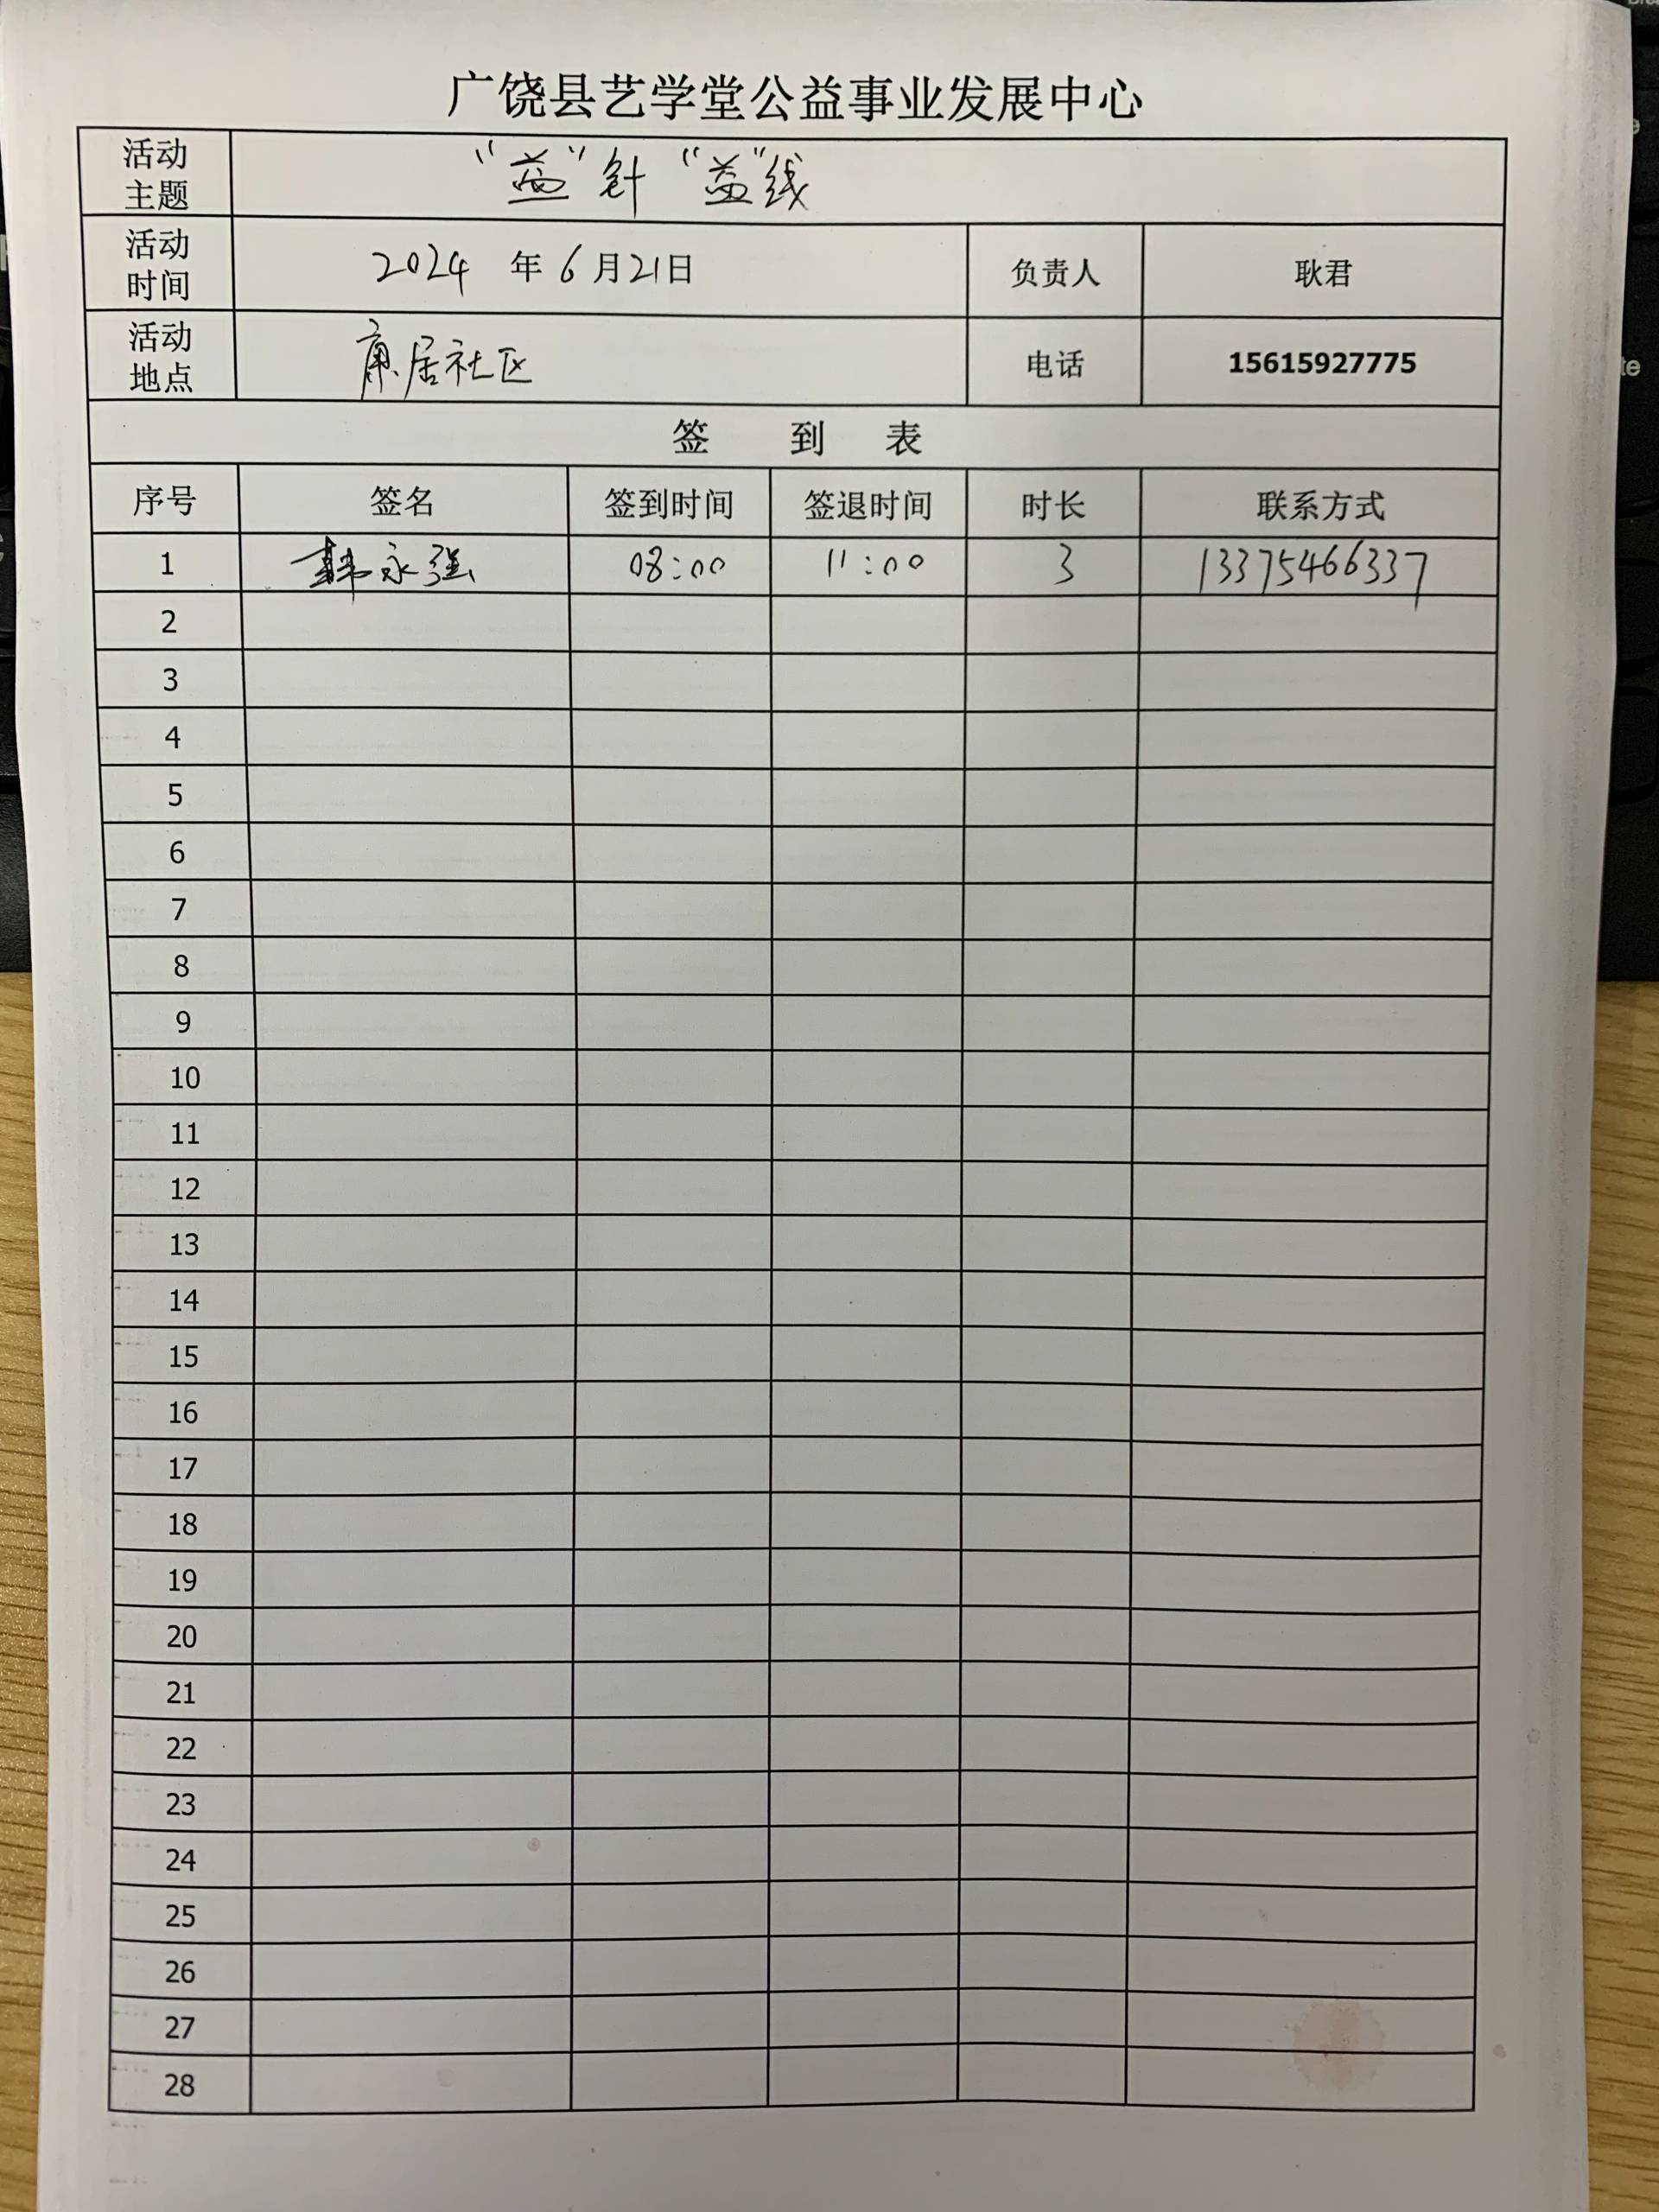 广饶县艺学堂公益事业发展中心
活动主题 “益”针“益”线
活动时间 2024 年 6 月 21 日 负责人 耿君
活动地点 康居社区 电话 15615927775
签 到 表
序号 签名 签到时间 签退时间 时长 联系方式
1 韩永强 08:00 11:00 3 13375466337
2
3
4
5
6
7
8
9
10
11
12
13
14
15
16
17
18
19
20
21
22
23
24
25
26
27
28